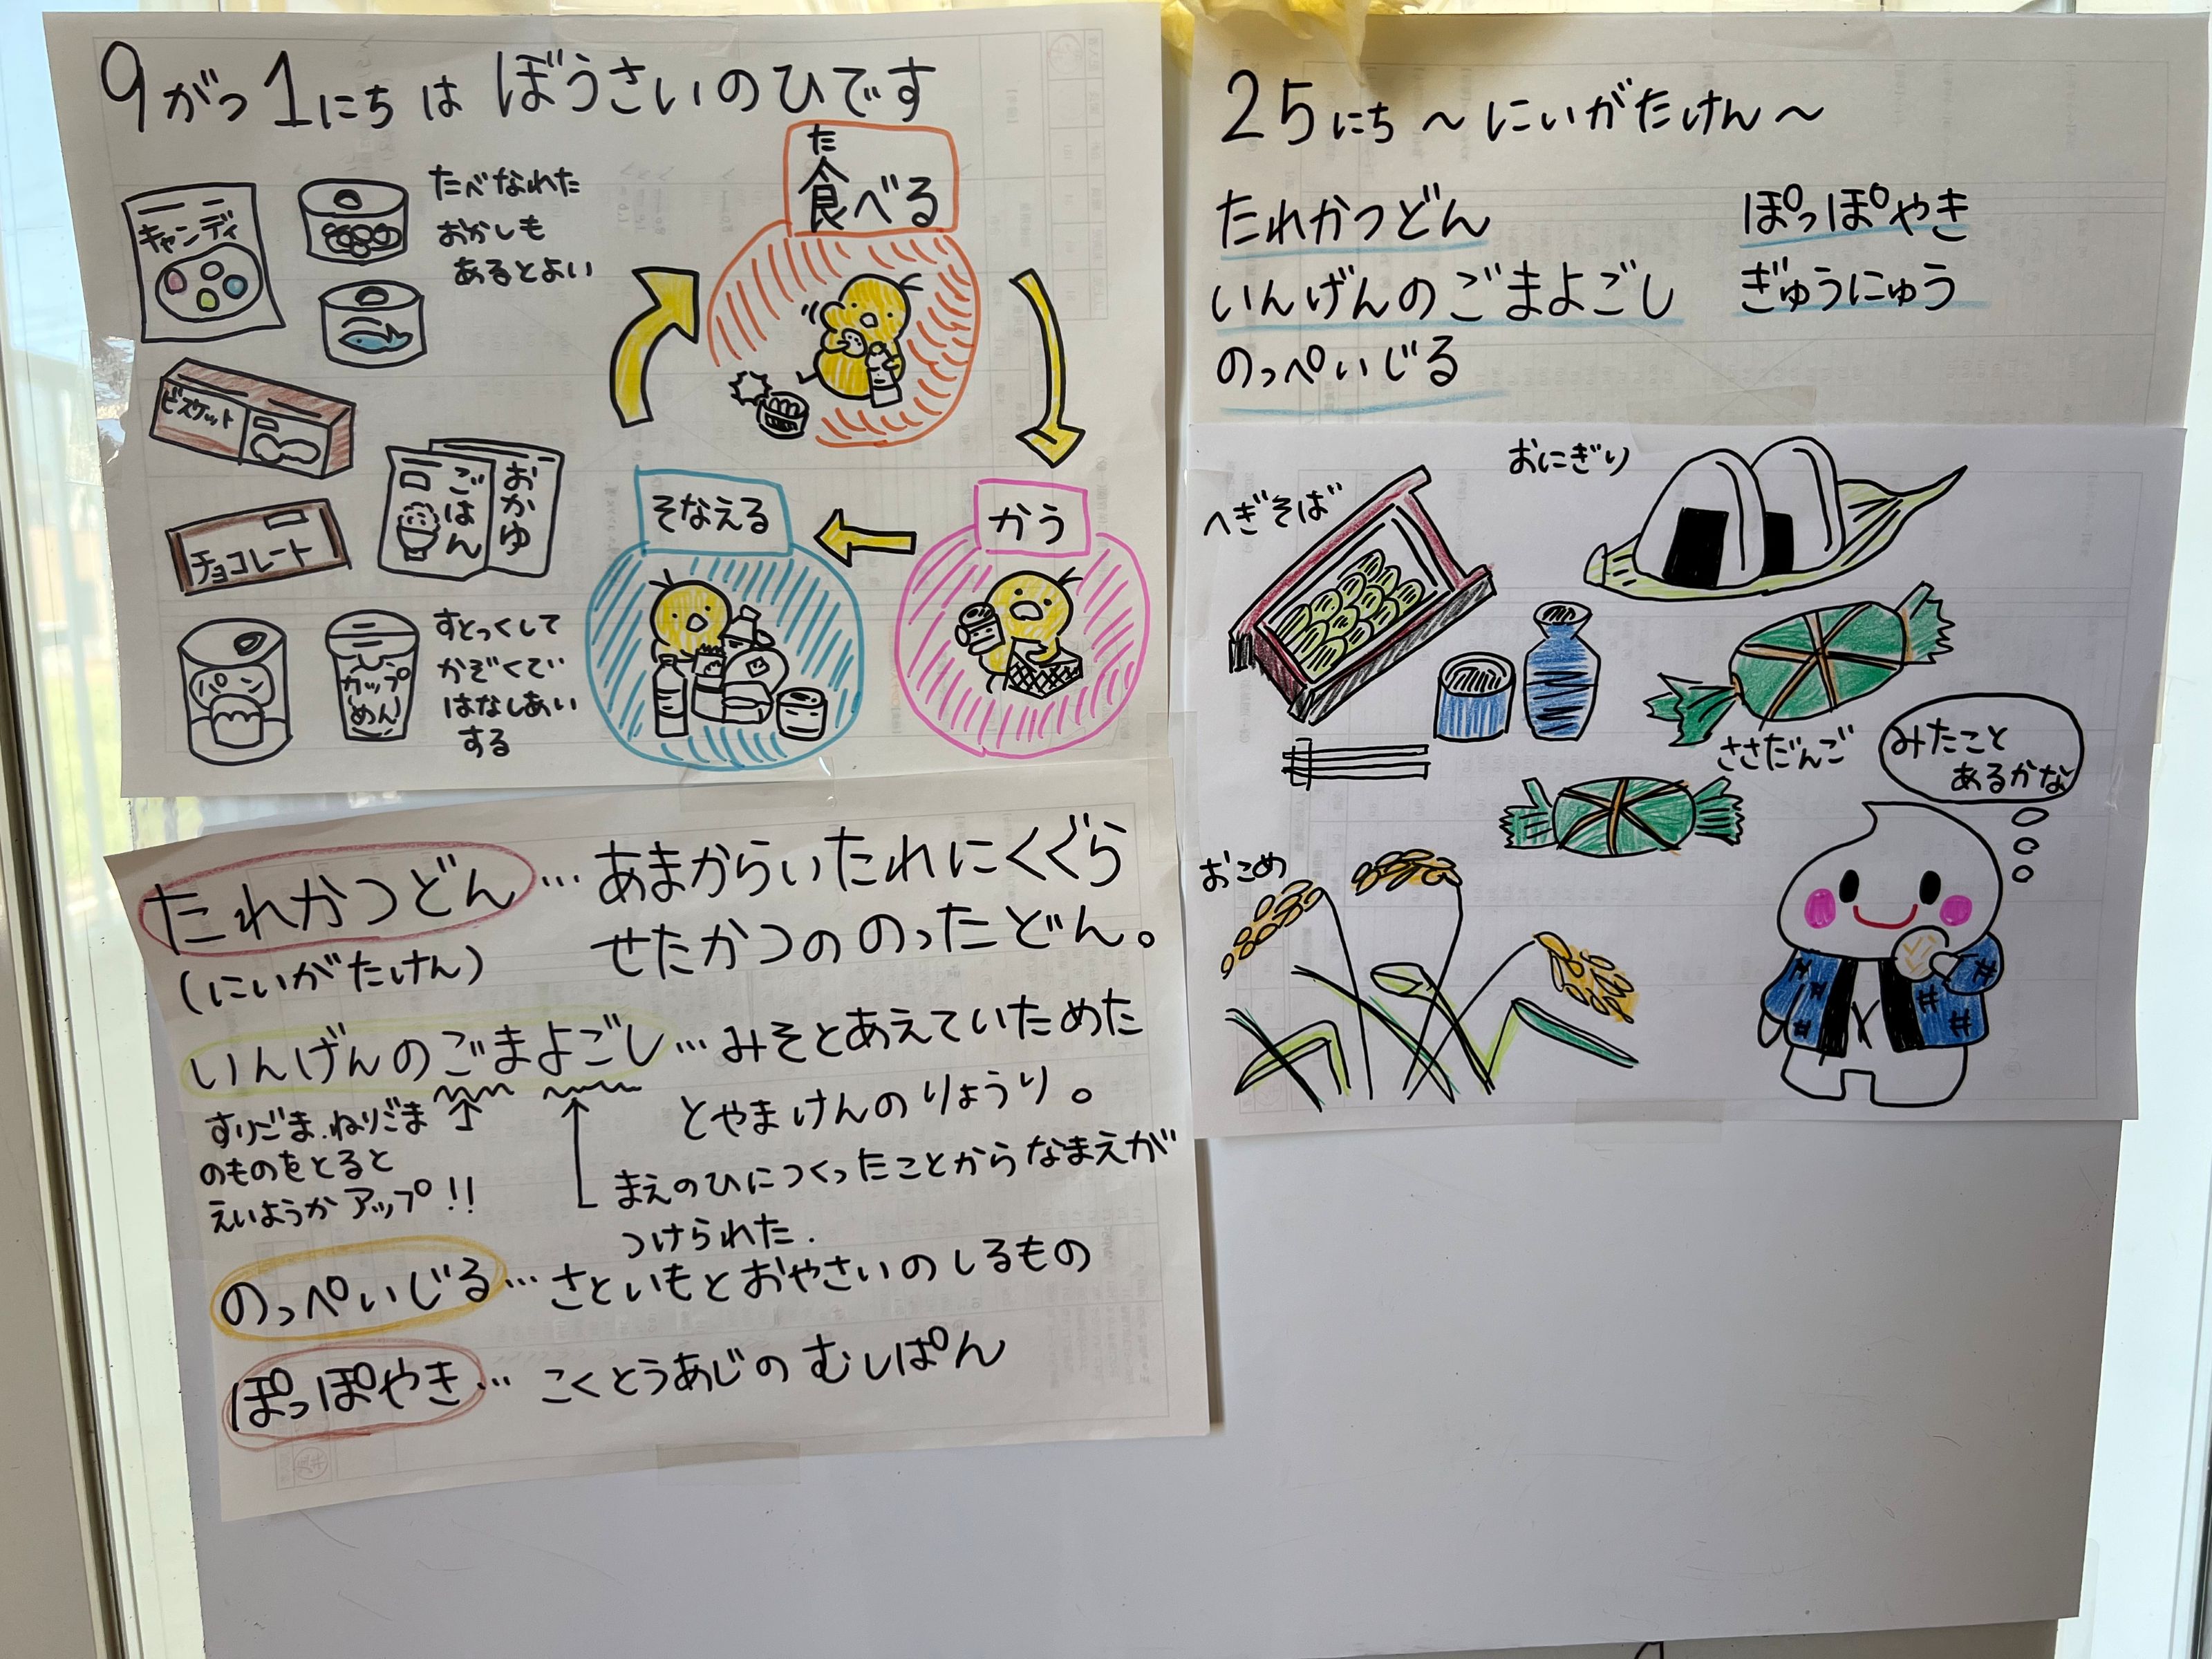 9がつ1にちは ぼうさいのひです
キャンディ
たべなれた
おかしも
あるとよい
た
食べる
ビスケット
ごはん
おかゆ
チョコレート
パン
カップ
めん
すとっくして
かぞくで
はなしあい
する
そなえる
かう
たれかつどん…あまからいたれにくぐら
せたかつののったどん。
(にいがたけん)
いんげんのごまよごし…みそとあえていためた
とやまけんのりょうり。
すりごま.ねりごま
のものをとると
えいようかアップ!!
まえのひにつくったことからなまえが
つけられた.
のっぺいじる…さといもとおやさいのしるもの
ぽっぽやき…こくとうあじのむしぱん
25にち〜にいがたけん〜
たれかつどん
いんげんのごまよごし
のっぺいじる
ぽっぽやき
ぎゅうにゅう
へぎそば
おにぎり
ささだんご
おこめ
みたこと
あるかな